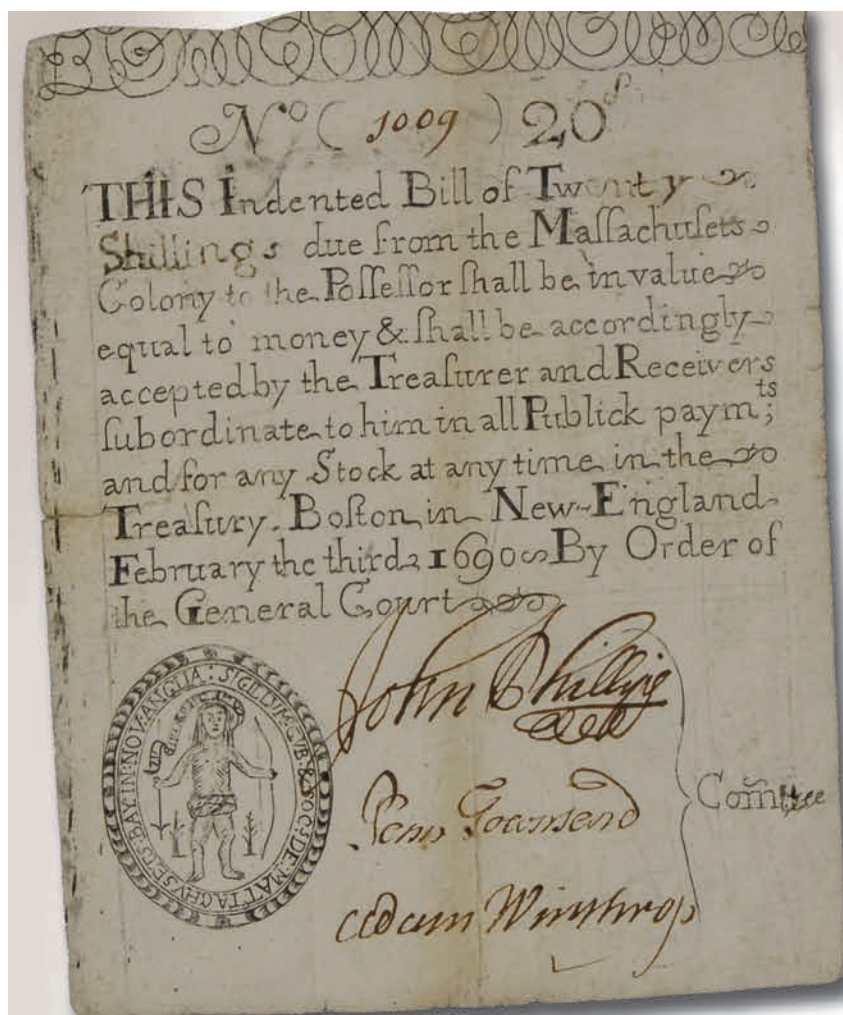 No ( 1009 ) 20s
THIS Indented Bill of Twenty
Shillings due from the Maſſachuſets
Colony to the Poſſeſſor ſhall be in value
equal to money & ſhall be accordingly
accepted by the Treaſurer and Receivers
ſubordinate to him in all Publick paymts;
and for any Stock at any time in the
Treaſury. Boſton in New-England
February the third 1690 By Order of
the General Court
John Phillips
Penn Townsend
Adam Winthrop
Com̃tee
SIGILLUM:GUB:&SOC:DE:MATTACHVSETS:BAY:IN:NOV:ANGLIA: